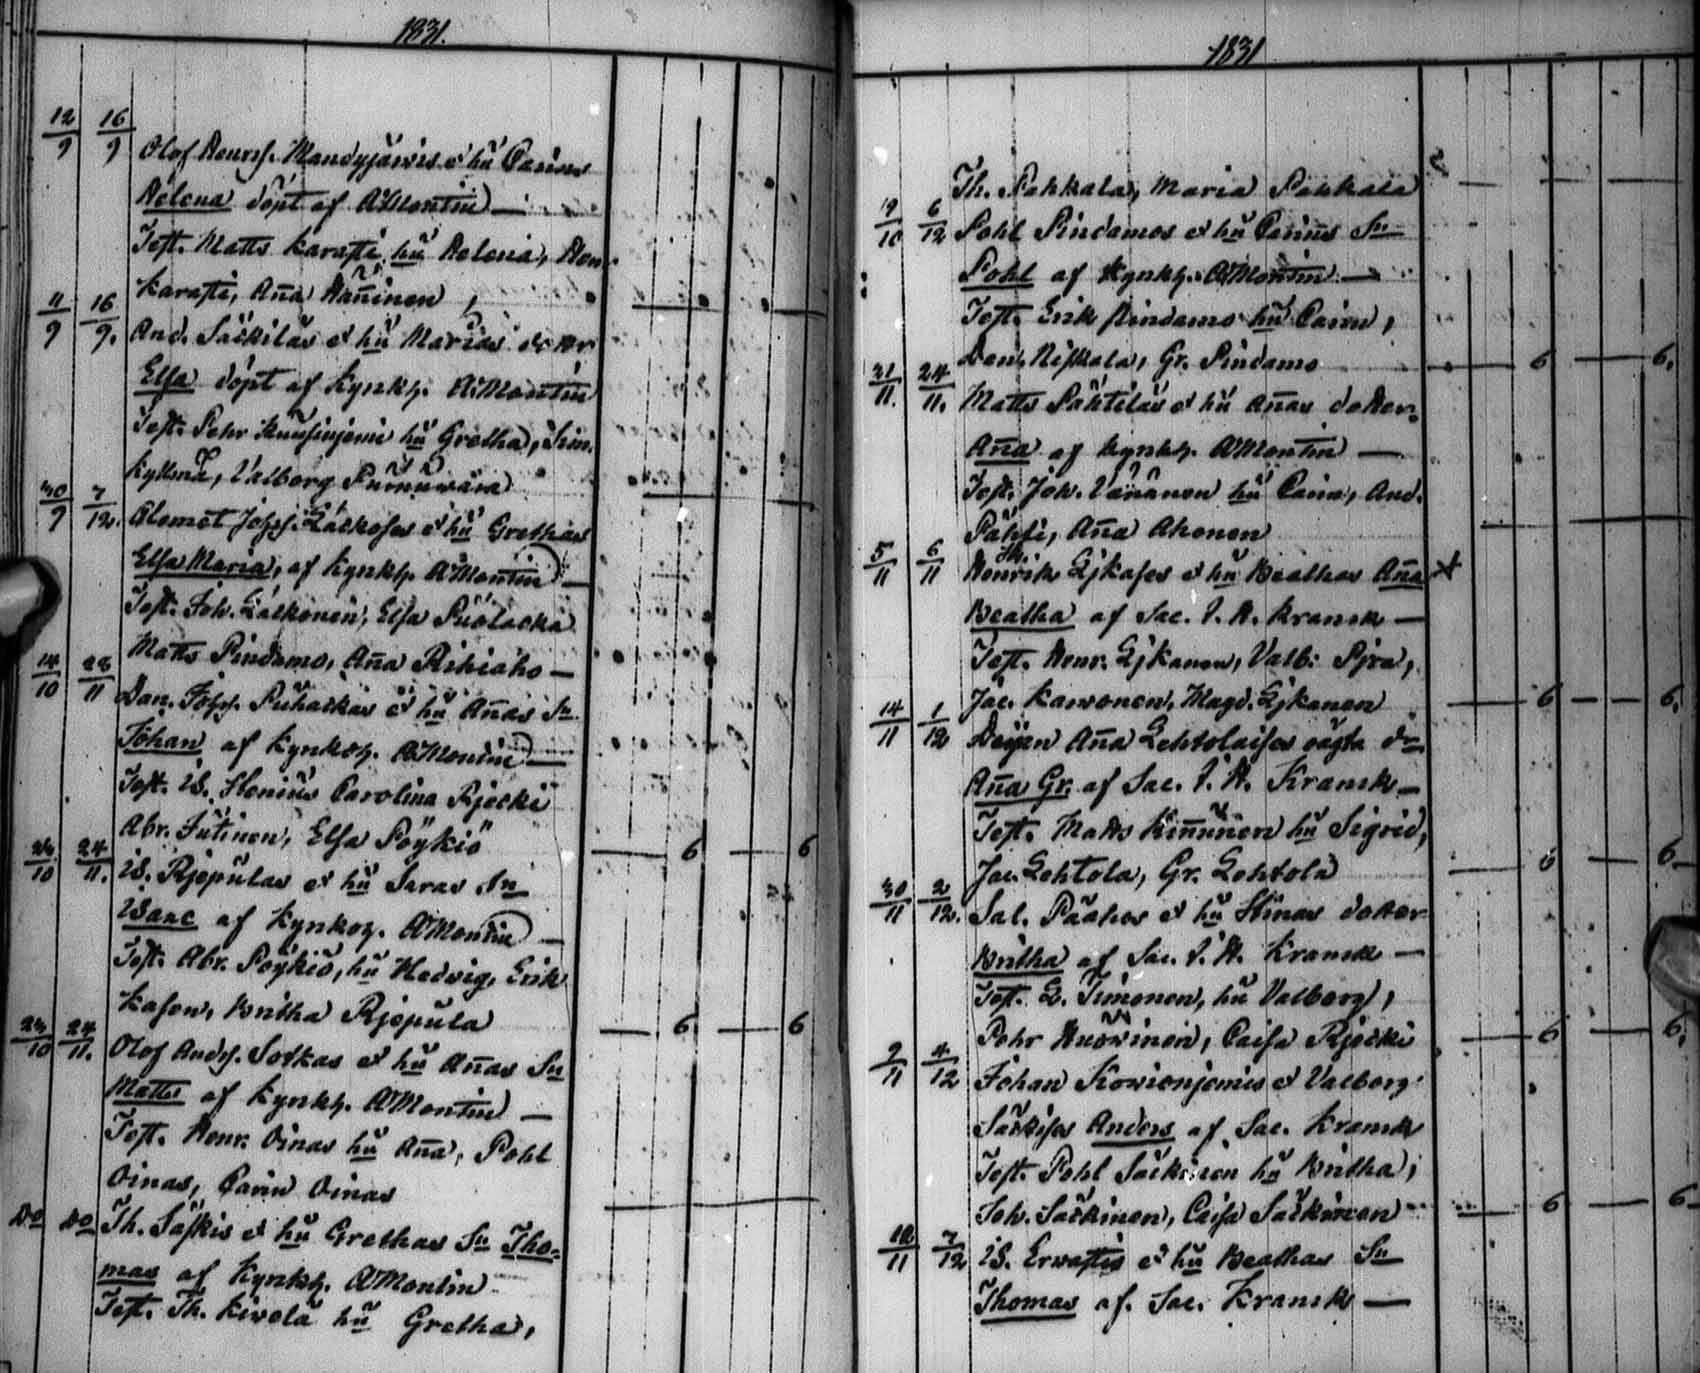 1831.
12/9 16/9 Olof Henrs. Mandyjärvis et hu Carins
Helena döpt af A. Montin —
Test. Matts Karasti hu Helena, Hen.
Karasti, Aña Hañinen
11/9 16/9. And. Säckiläs et hu Marias dotter
Elsa döpt af Kynkh. A. Montin
Test. Pehr Kuusinjemi hu Gretha, Sim.
Kyllmä, Valborg Purnuwara
30/9 7/12. Klemet Johss. Läckoses et hu Grethas
Elsa Maria, af Kynkh. A. Montin —
Test. Joh. Läckonen, Elsa Puolacka
Matts Pindamo, Aña Rihiaho —
14/10 22/11 Dan. Johss. Puhackas et hu Añas Sn
Johan af Kynkh. A. Montin —
Test. Is. Stenius Carolina Rjecki
Abr. Jutinen, Elsa Pöykiö
26/10 24/11. Is. Rjepulas et hu Saras Sn 6 6
Isaac af Kynkh. A. Montin —
Test. Abr. Pöykiö, hu Hedvig, Erik
Kasen, Britha Rjepula 6 6
23/10 24/11. Olof Anders. Sotkas et hu Añas Sn
Matts af Kynkh. A. Montin —
Test. Henr. Oinas hu Aña, Pohl
Oinas, Carin Oinas
Do Do Th. Säskis et hu Grethas Sn Tho-
mas af Kynkh. A. Montin
Test. Th. Kivelä hu Gretha,
1831
Th. Pakkala, Maria Pakkala
19/10 6/12 Pohl Pindamos et hu Carins Sn
Pohl af Kynkh. A. Montin —
Test. Erik Pindamo hu Carin,
Dan. Niskala, Gr. Pindamo 6 6.
21/11. 24/11. Matts Pähtiläs et hu Añas dotter
Aña af Kynkh. A. Montin —
Test. Joh. Väñänen hu Carin, And.
Pähti, Aña Ahonen
5/11 6/11 Henrik Ljkases et hu Beathas Aña
Beatha af Sac. J. H. Kranck —
Test. Henr. Ljkanen, Valb. Pjra,
Jac. Karvonen, Magd. Ljkanen 6 6.
14/11 1/12 Pigan Aña Lehtolaises oägta dr
Aña Gr. af Sac. J. H. Kranck —
Test. Matts Kiñunen hu Sigrid,
Jac. Lehtola, Gr. Lehtola 6 6
30/11 2/12. Sal. Paahos et hu Stinas dotter
Britha af Sac. J. H. Kranck —
Test. L. Timonen, hu Valborg,
Pehr Huovinen, Caisa Rjecki 6 6.
9/11 4/12 Johan Kovionjemis et Valborg
Säckises Anders af Sac. Kranck
Test. Pohl Säckinen hu Britha,
Joh. Säckinen, Caisa Säckinen 6 6
10/11 7/12 Is. Ervastis et hu Beathas Sn
Thomas af. Sac. Kranck —